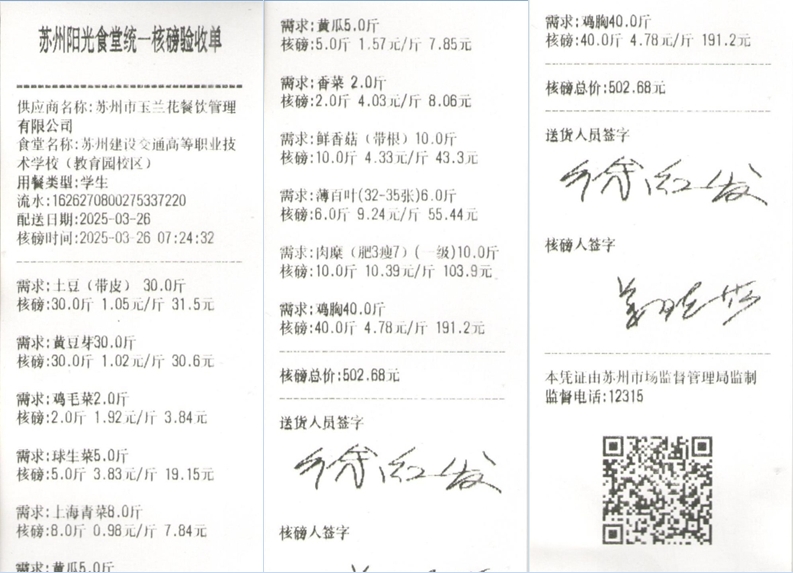 苏州阳光食堂统一核磅验收单
供应商名称:苏州市玉兰花餐饮管理
有限公司
食堂名称:苏州建设交通高等职业技
术学校（教育园校区）
用餐类型:学生
流水:1626270800275337220
配送日期:2025-03-26
核磅时间:2025-03-26 07:24:32
需求:土豆（带皮） 30.0斤
核磅:30.0斤 1.05元/斤 31.5元
需求:黄豆芽30.0斤
核磅:30.0斤 1.02元/斤 30.6元
需求:鸡毛菜2.0斤
核磅:2.0斤 1.92元/斤 3.84元
需求:球生菜5.0斤
核磅:5.0斤 3.83元/斤 19.15元
需求:上海青菜8.0斤
核磅:8.0斤 0.98元/斤 7.84元
需求:黄瓜5.0斤
需求:黄瓜5.0斤
核磅:5.0斤 1.57元/斤 7.85元
需求:香菜 2.0斤
核磅:2.0斤 4.03元/斤 8.06元
需求:鲜香菇（带根）10.0斤
核磅:10.0斤 4.33元/斤 43.3元
需求:薄百叶(32-35张)6.0斤
核磅:6.0斤 9.24元/斤 55.44元
需求:肉糜（肥3瘦7）(一级)10.0斤
核磅:10.0斤 10.39元/斤 103.9元
需求:鸡胸40.0斤
核磅:40.0斤 4.78元/斤 191.2元
核磅总价:502.68元
送货人员签字
徐红发
核磅人签字
需求:鸡胸40.0斤
核磅:40.0斤 4.78元/斤 191.2元
核磅总价:502.68元
送货人员签字
徐红发
核磅人签字
本凭证由苏州市场监督管理局监制
监督电话:12315